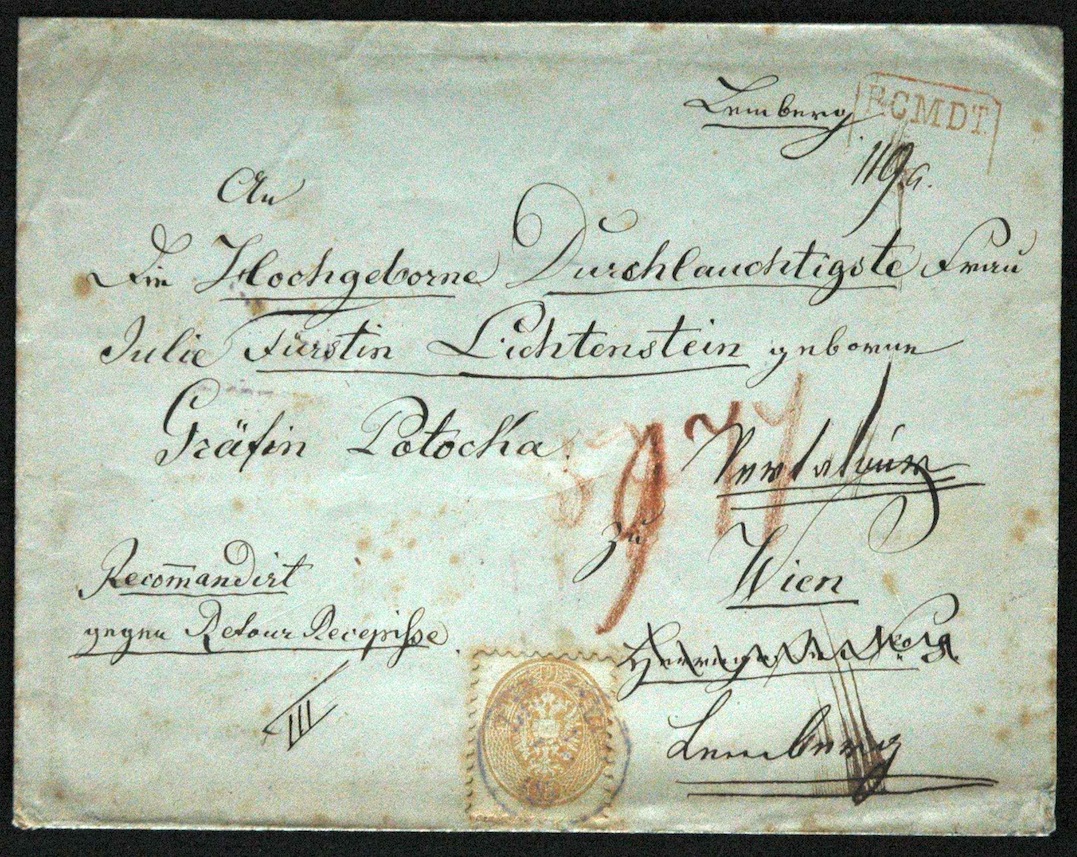 Lemberg
RCMDT.
An
Hochgeborne Durchlauchtigste Frau
Julie Fürstin Lichtenstein geborne
Gräfin Potocka.
zu
Wien
Recom̄andirt
gegen Retour Recepisse.
III
Lemberg